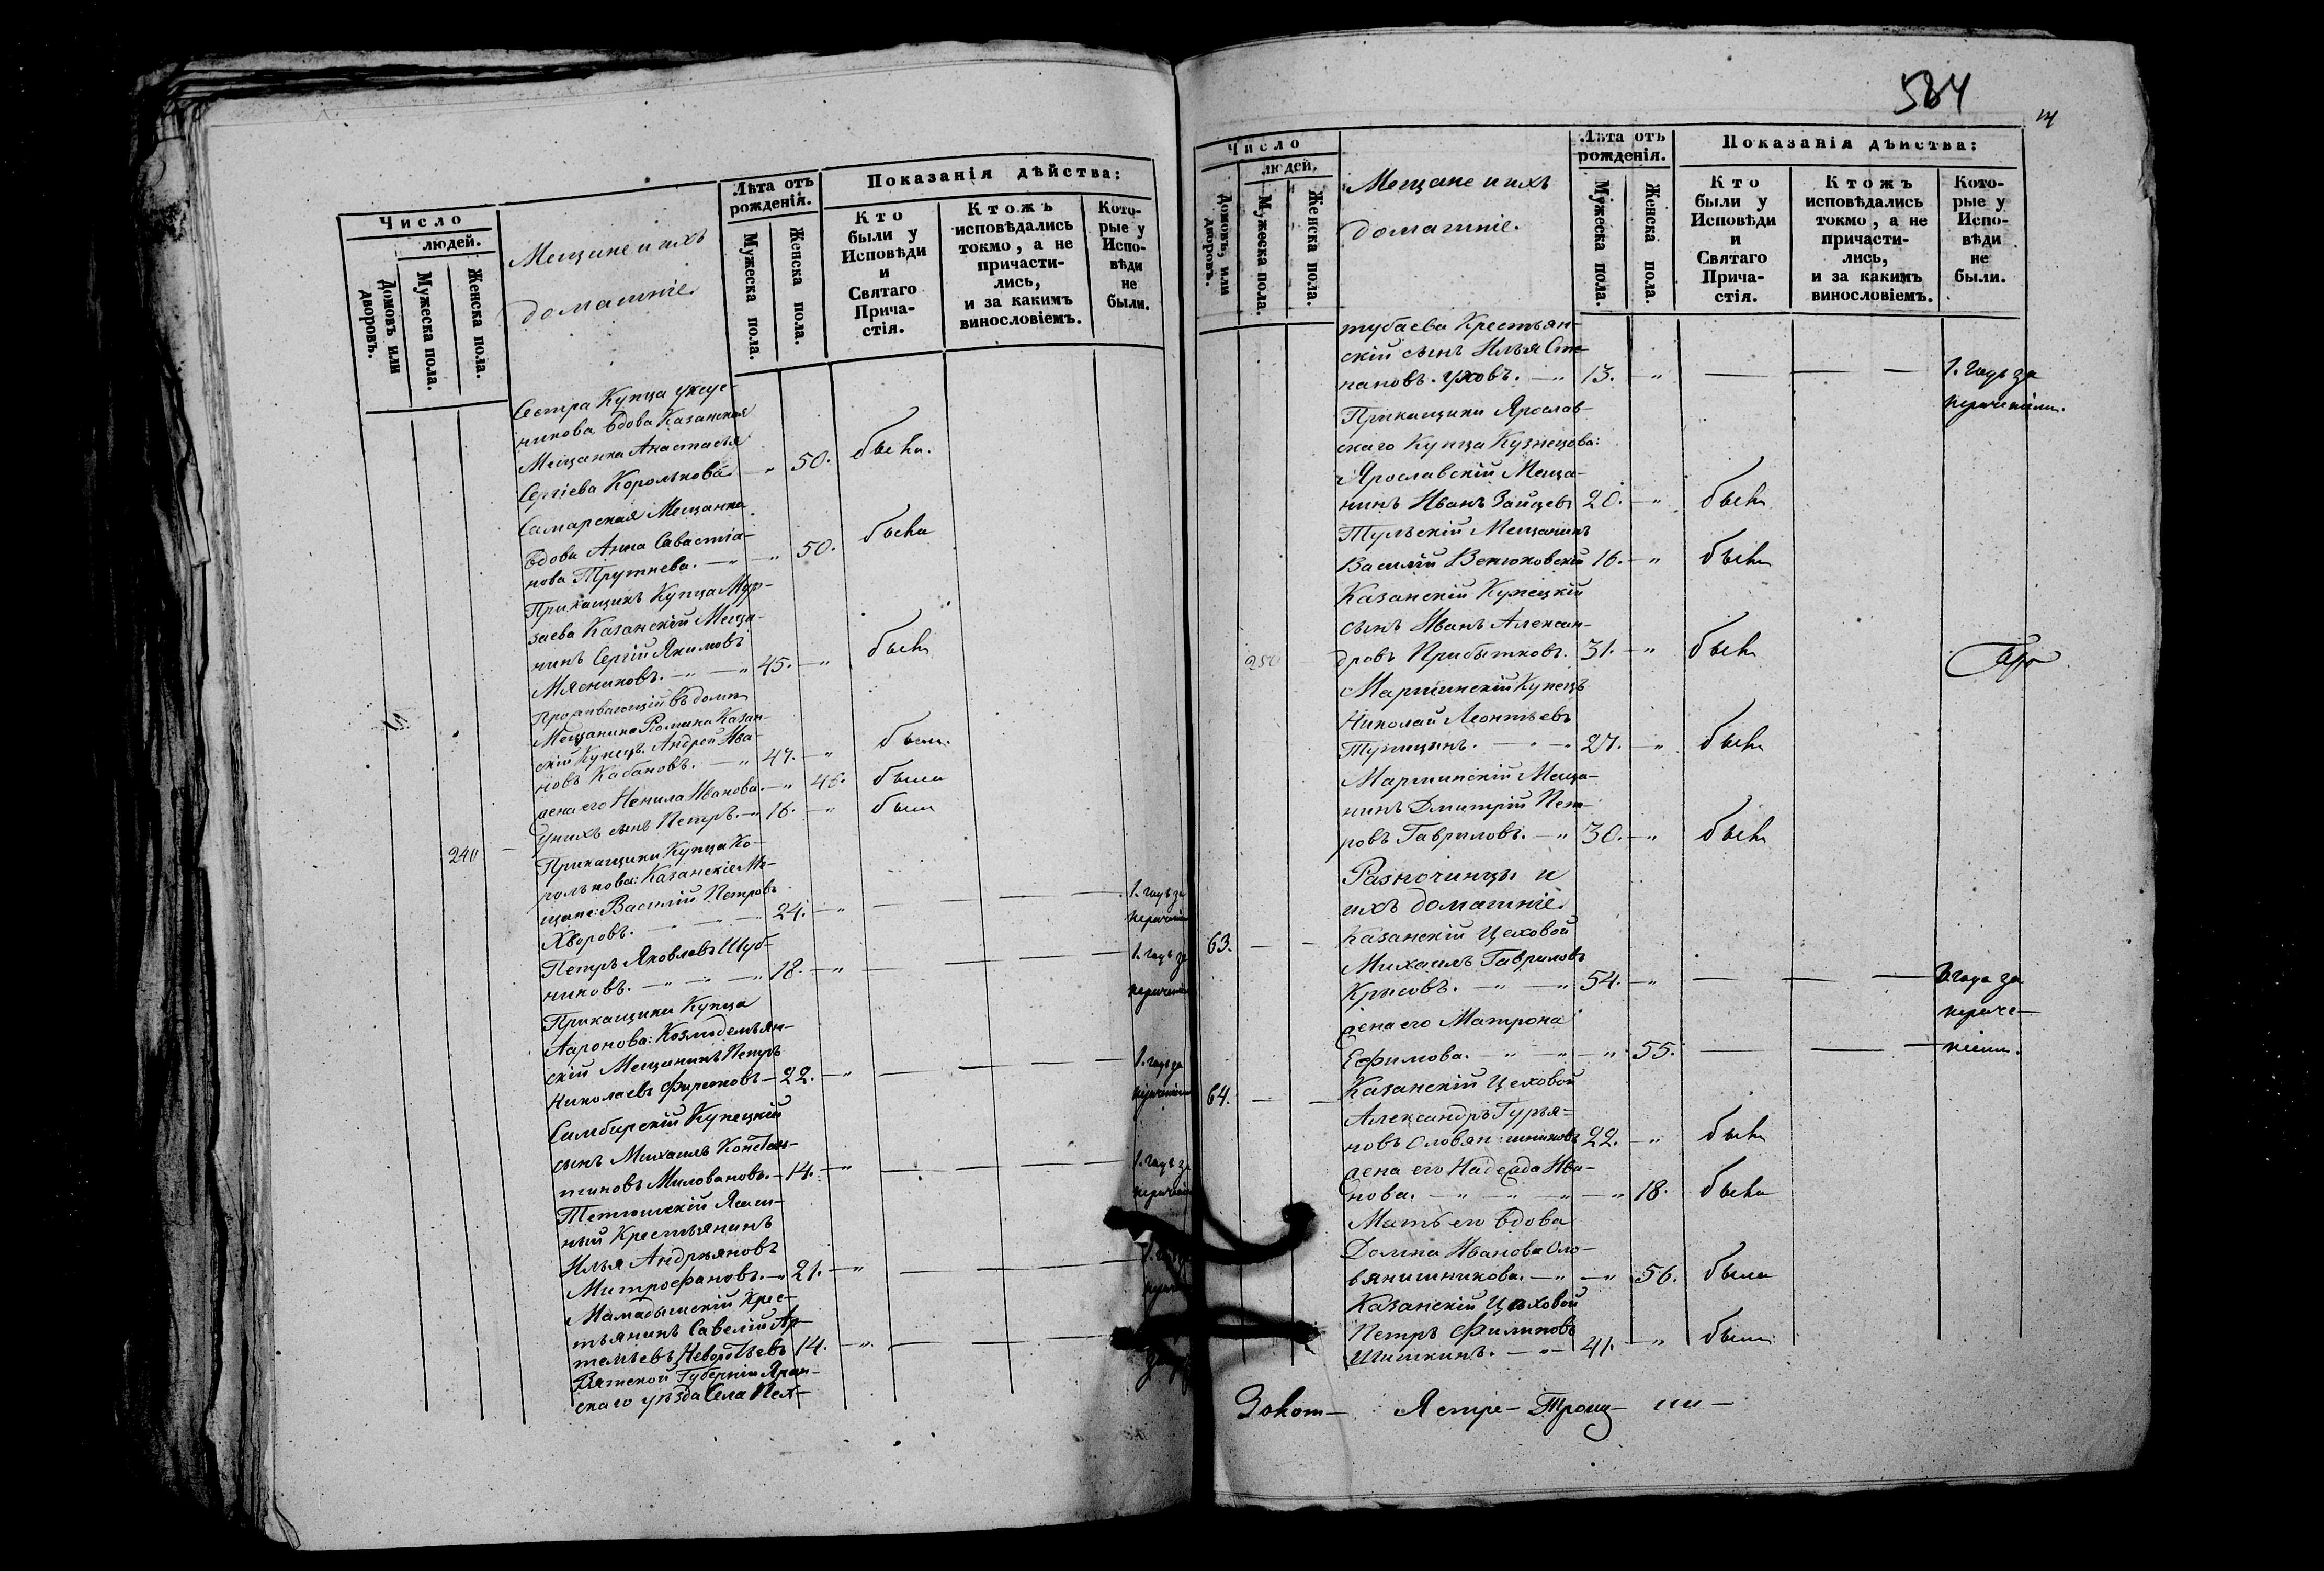 Число
людей.
Домовъ или дворовъ.
Мужеска пола.
Женска пола.
Мещане и ихъ
домашніе
Лѣта отъ
рожденія.
Мужеска пола.
Женска пола.
Показанія дѣйства:
Кто
были у
Исповѣди
и
Святаго
Прича-
стія.
Ктожъ
исповѣдались
токмо, а не
причасти-
лись,
и за какимъ
винословіемъ.
Кото-
рые у
Испо-
вѣди
не
были.
Сестра Купца
никова вдова Казанская
Мещанка Анастасья
Сергіева Королькова — „ 50. была.
Самарская Мещанка
вдова Анна Савастіа-
нова Трутнева. — „ — „ 50. была
Прикащикъ Купца Мур-
заева Казанскій Меща-
нинъ Сергій Якимовъ
Мясниковъ. — „ — „ 45. — „ былъ
Проживающій въ доме
Мещанина Ромина Казан-
скій Купецъ Андрей Ива-
новъ Кабановъ. — „ 47. — „ былъ.
жена его Ненила Иванова. — „ 45. была
У нихъ сынъ Петръ. — „ 16. — „ былъ
240 Прикащики Купца Ко-
ролькова: Казанскіе Ме-
щане: Василій Петровъ
Хворовъ. — — — 24. — „ — — — 1. годъ за
Петръ Яковлевъ Шуб-
никовъ. — „ — „ — „ 18. — „ — — — 1. годъ за
Прикащики Купца
Ааронова: Козмодемьян-
скій Мещанинъ Петръ
Николаевъ Фирсовъ — 22. — „ — — — 1. годъ за
Симбирскій Купецкій
сынъ Михаилъ Констан-
тиновъ Миловановъ. — 14. — „ — — — 1. годъ за
Тетюшскій Ясаш-
ный Крестьянинъ
Илья Андреяновъ
Митрофановъ. — „ 21. — „ — — —
Мамадышскій Крес-
тьянинъ Савелій Ар-
темьевъ 14. — „ — — —
Вятской Губерніи Яран-
скаго уѣзда Села Пек-
584
Число
людей.
Домовъ, или дворовъ.
Мужеска пола.
Женска пола.
Мещане и ихъ
домашніе.
Лѣта отъ
рожденія.
Мужеска пола.
Женска пола.
Показанія дѣйства:
Кто
были у
Исповѣди
и
Святаго
Прича-
стія.
Ктожъ
исповѣдались
токмо, а не
причасти-
лись,
и за какимъ
винословіемъ.
Кото-
рые у
Испо-
вѣди
не
были.
тубаева Крестьян-
скій сынъ Илья Сте-
пановъ. — „ 13. — „ — — — 1. годъ за
Прикащики Ярослав-
скаго Купца Кузнецова:
Ярославскій Меща-
нинъ Иванъ Зайцевъ 20. — „ былъ
Тульскій Мещанинъ
Василій Венюковскій 16. — „ былъ
Казанскій Купецкій
сынъ Иванъ Алексан-
250 дровъ Прибытковъ. 31. — „ былъ
Маріинскій Купецъ
Николай Леонтьевъ
Тупицынъ. — „ — „ 27. — „ былъ
Маріинскій Меща-
нинъ Дмитрій Пет-
ровъ Гавриловъ. — „ 30. — „ былъ
Разночинцы и
ихъ домашніе
63. — — Казанскій Цеховой
Михаилъ Гавриловъ
Крысовъ. — „ — „ 54. — „ — — — года за
жена его Матрона
Ефимова. — „ — „ — „ 55. — — —
64. — — Казанскій Цеховой
Александръ Гурья-
новъ Оловянишниковъ 22. — „ былъ
жена его Надежда Ива-
нова. — „ — „ — „ — „ 18. была
Мать его вдова
Домна Иванова Оло-
вянишникова. — „ — „ 56. была
Казанскій Цеховой
Петръ Филиповъ
Шишкинъ. — „ — 41. — „ былъ